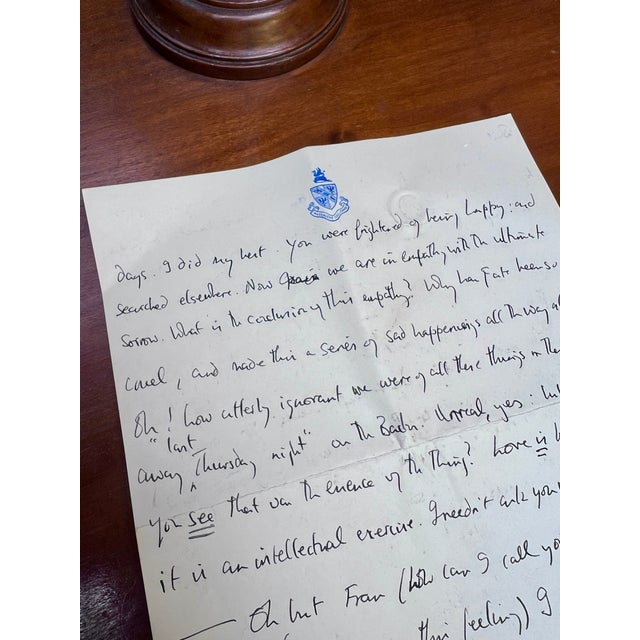 days. I did my best. You were frightened of being happy: and
searched elsewhere. Now we are in empathy with the ultimate
sorrow. What is the conclusion of this empathy? Why has Fate been so
cruel, and made this a series of sad happenings all the way
Oh! how utterly ignorant we were of all these things on the
"last
away Thursday night" on the Unreal, yes:
you see that was the essence of the thing? Love is
it is an intellectual exercise. I needn't ask you
— Oh but Fran (how can I call yo
this feeling) I